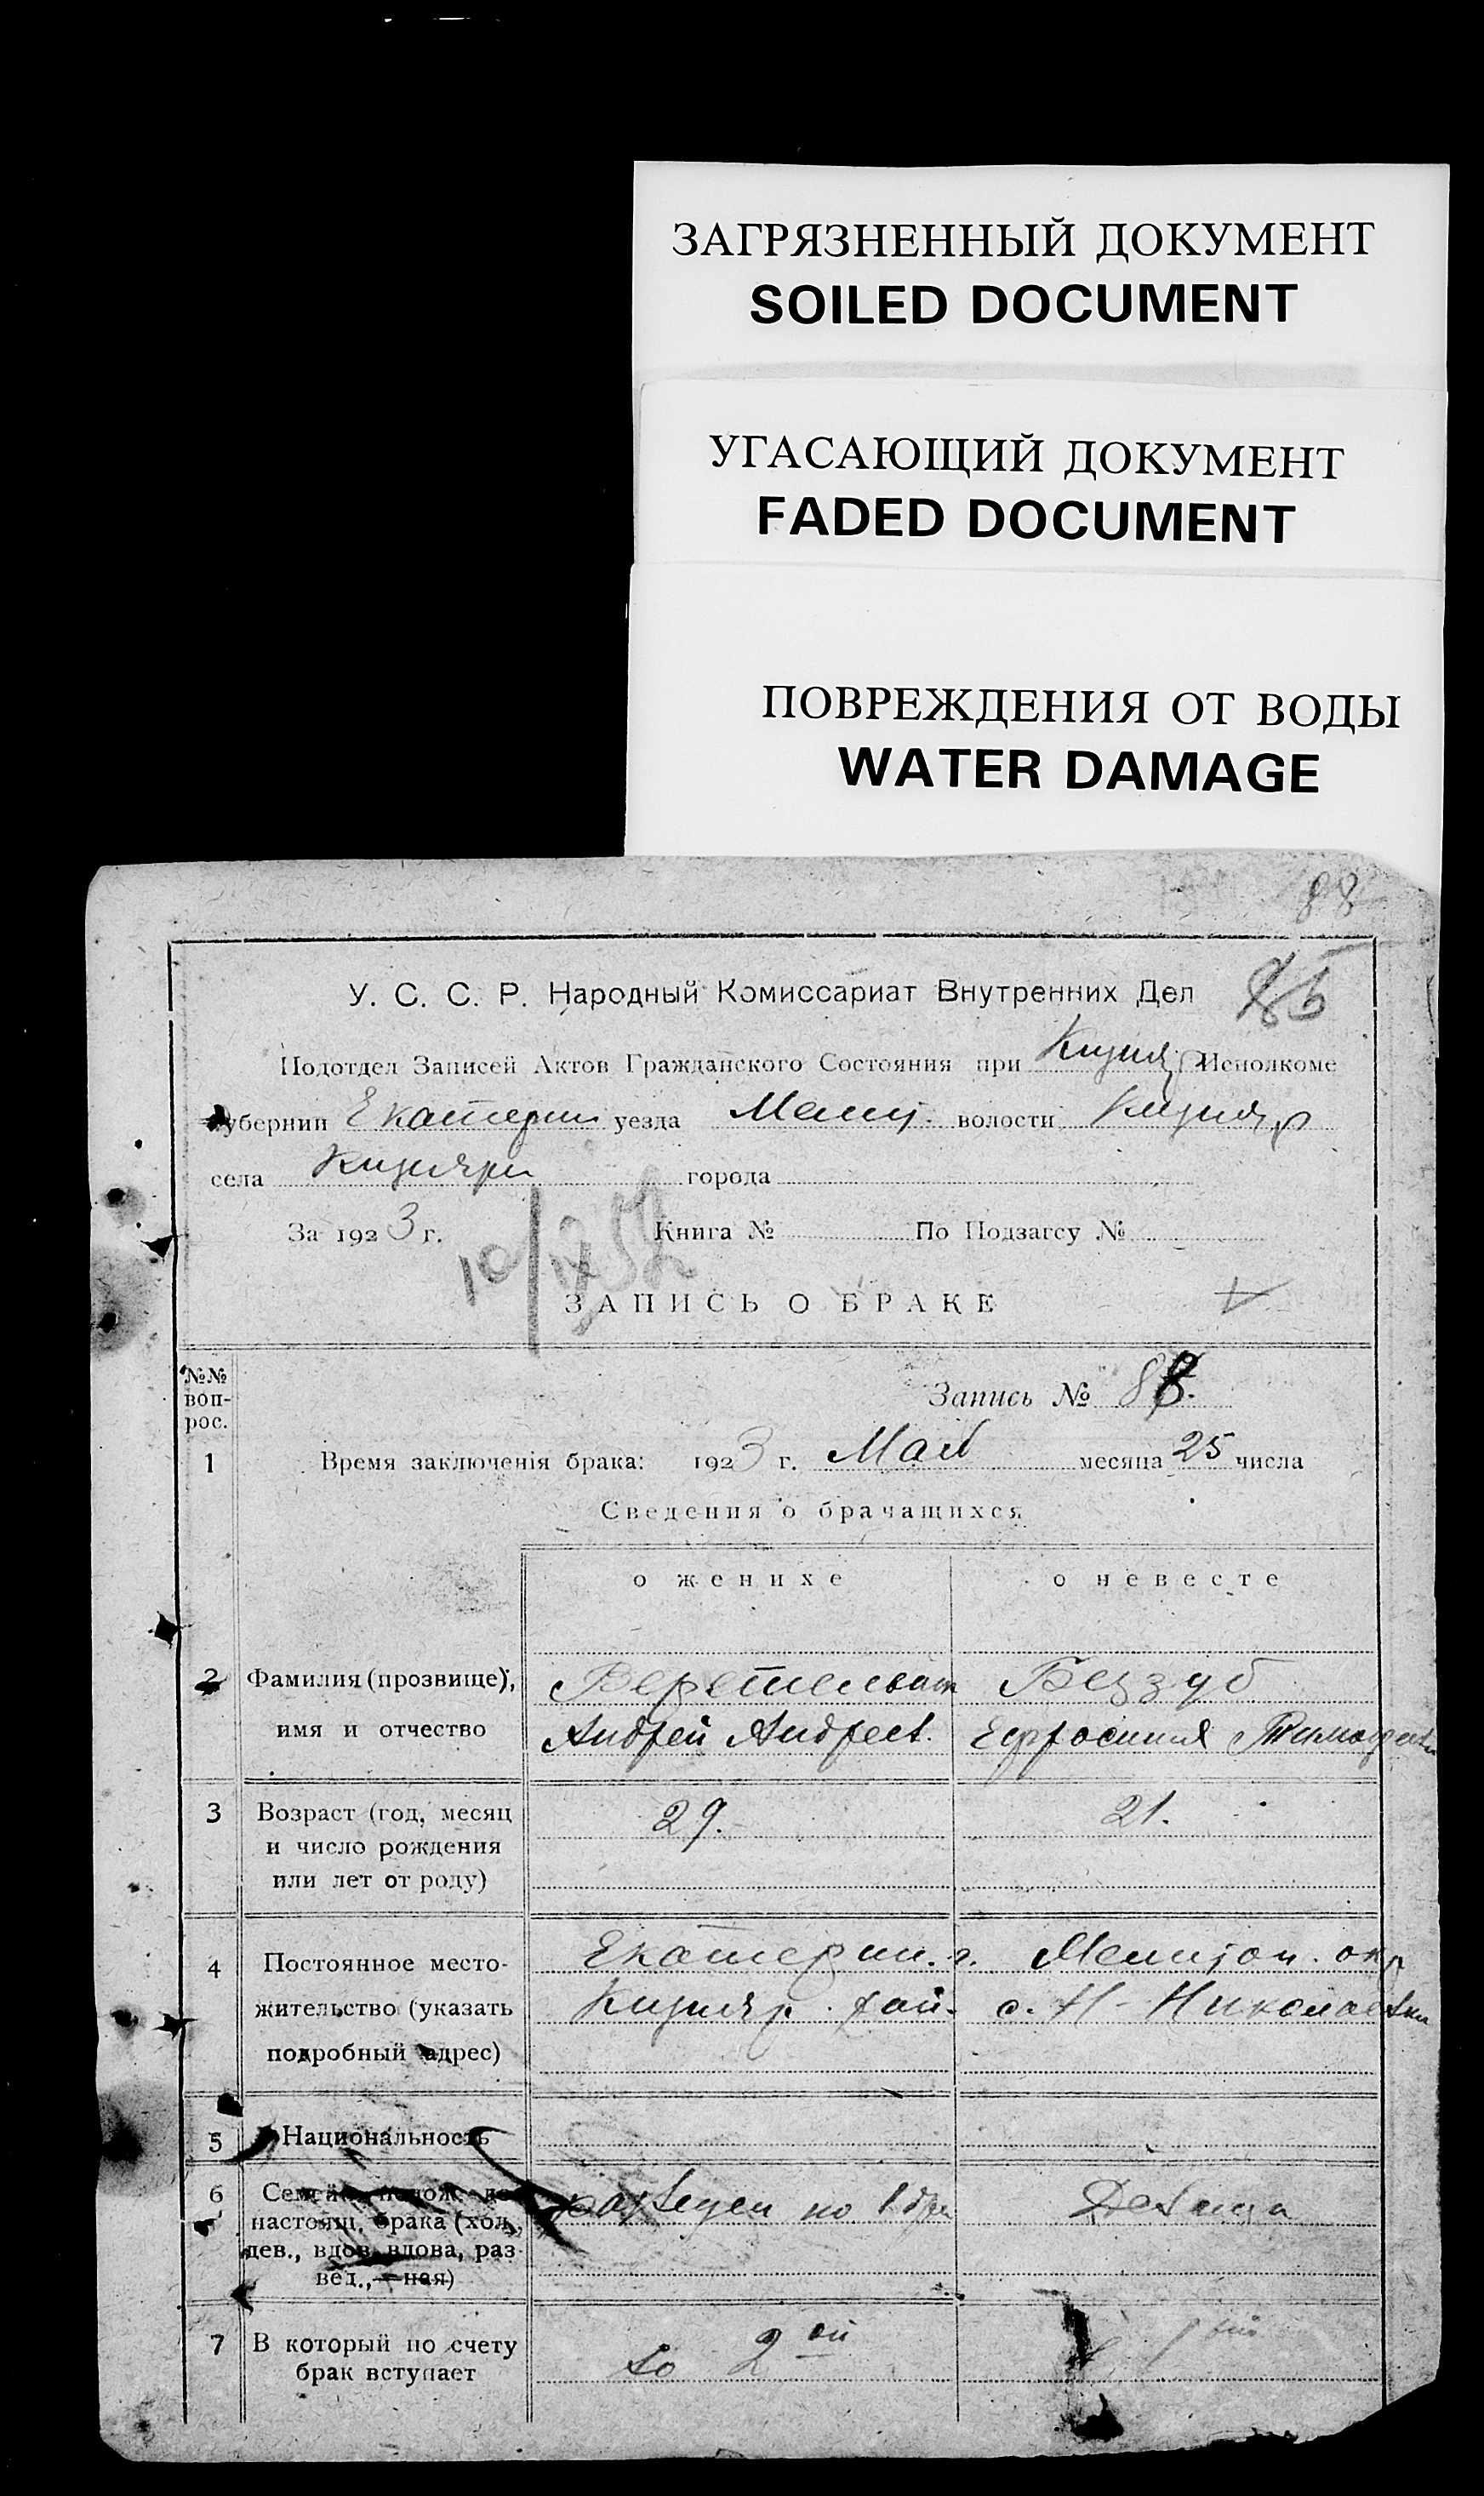 ЗАГРЯЗНЕННЫЙ ДОКУМЕНТ
SOILED DOCUMENT
УГАСАЮЩИЙ ДОКУМЕНТ
FADED DOCUMENT
ПОВРЕЖДЕНИЯ ОТ ВОДЫ
WATER DAMAGE
88
У. С. С. Р. Народный Комиссариат Внутренних Дел
Подотдел Записей Актов Гражданского Состояния при Кизияр. Исполкоме
Губернии Екатерин уезда Мелит. волости Кизияр
села Кизияри города
За 1923 г. Книга № По Подзагсу №
ЗАПИСЬ О БРАКЕ
№№ вопрос.
Запись № 88.
1 Время заключенія брака: 1923 г. Май месяца 25 числа
Сведения о брачащихся
о женихе о невесте
2 Фамилия (прозвище), Беззуб
имя и отчество Андрей Андреев. Ефросиния
3 Возраст (год, месяц 29. 21.
и число рождения
или лет от роду)
4 Постоянное место- Екатерин. г. Мелитоп. окр
жительство (указать Кизияр. рай. с. Н-Николаевки
подробный адрес)
5 Национальность
6 Семейн. полож. до разведен по Девица
настоящ. брака (хол.,
дев., вдов., вдова, раз-
вед., —ная)
7 В который по счету во 2ой
брак вступает